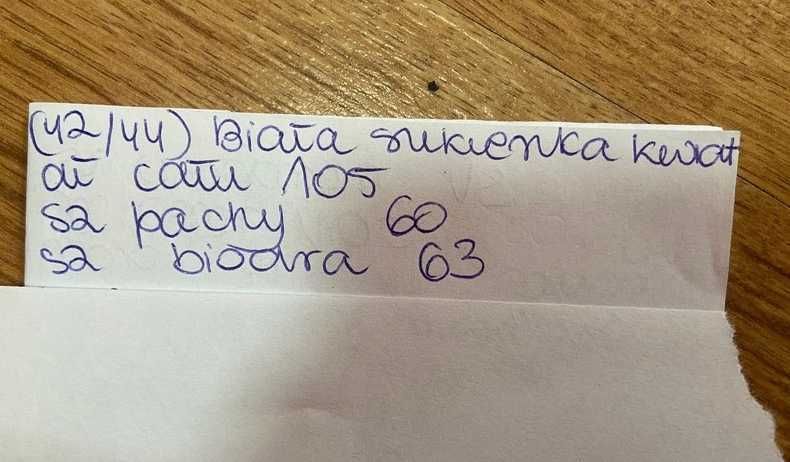 (42/44) Biała sukienka kwiat
dł całk 105
sz pachy 60
sz biodra 63